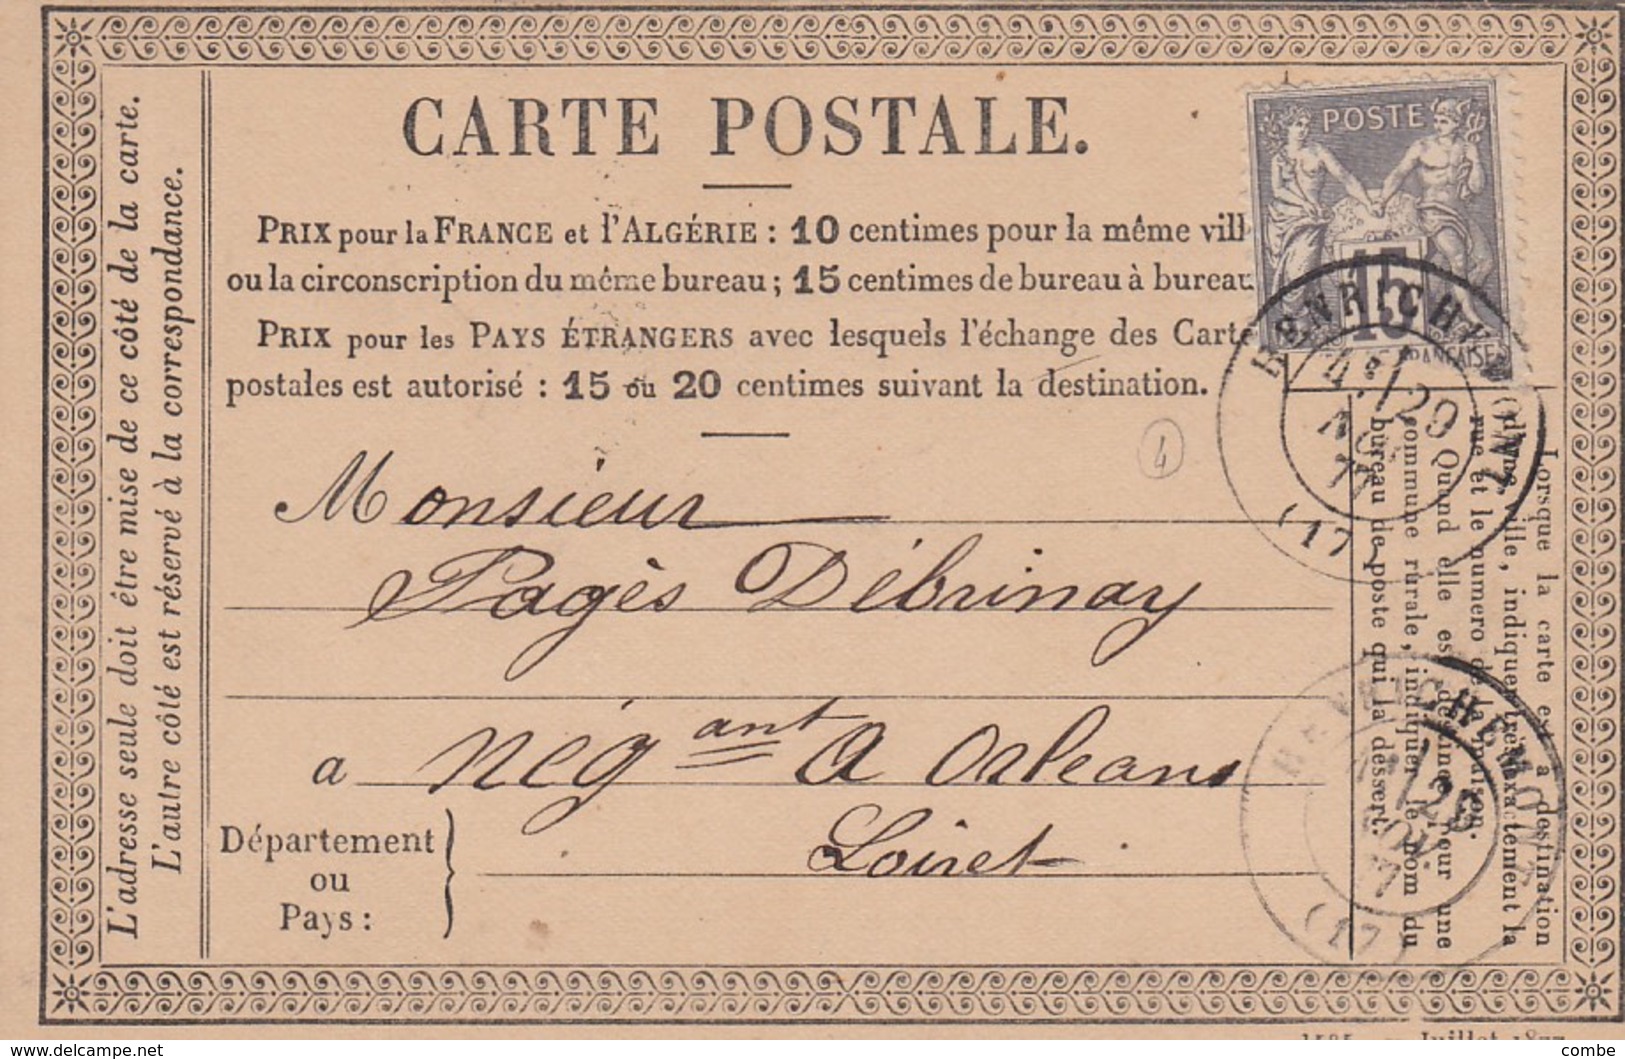 CARTE POSTALE.
PRIX pour la FRANCE et l'ALGÉRIE : 10 centimes pour la même vill
ou la circonscription du même bureau ; 15 centimes de bureau à bureau
PRIX pour les PAYS ÉTRANGERS avec lesquels l'échange des Carte
postales est autorisé : 15 ou 20 centimes suivant la destination.
L'adresse seule doit être mise de ce côté de la carte.
L'autre côté est réservé à la correspondance.
POSTE
15
4
Monsieur
Pagès Débrinay
a négant a Orléans
Département
ou
Pays :
Loiret
Lorsque la carte est à destination
d'une ville, indiquer très-exactement la
rue et le numéro de la maison.
Quand elle est destinée pour une
commune rurale, indiquer le nom du
bureau de poste qui la dessert.
HENRICHEMONT
4E
29
NOV
77
(17)
HENRICHEMONT
NOV.
(17)
Juillet 1877
delcampe.net
combe